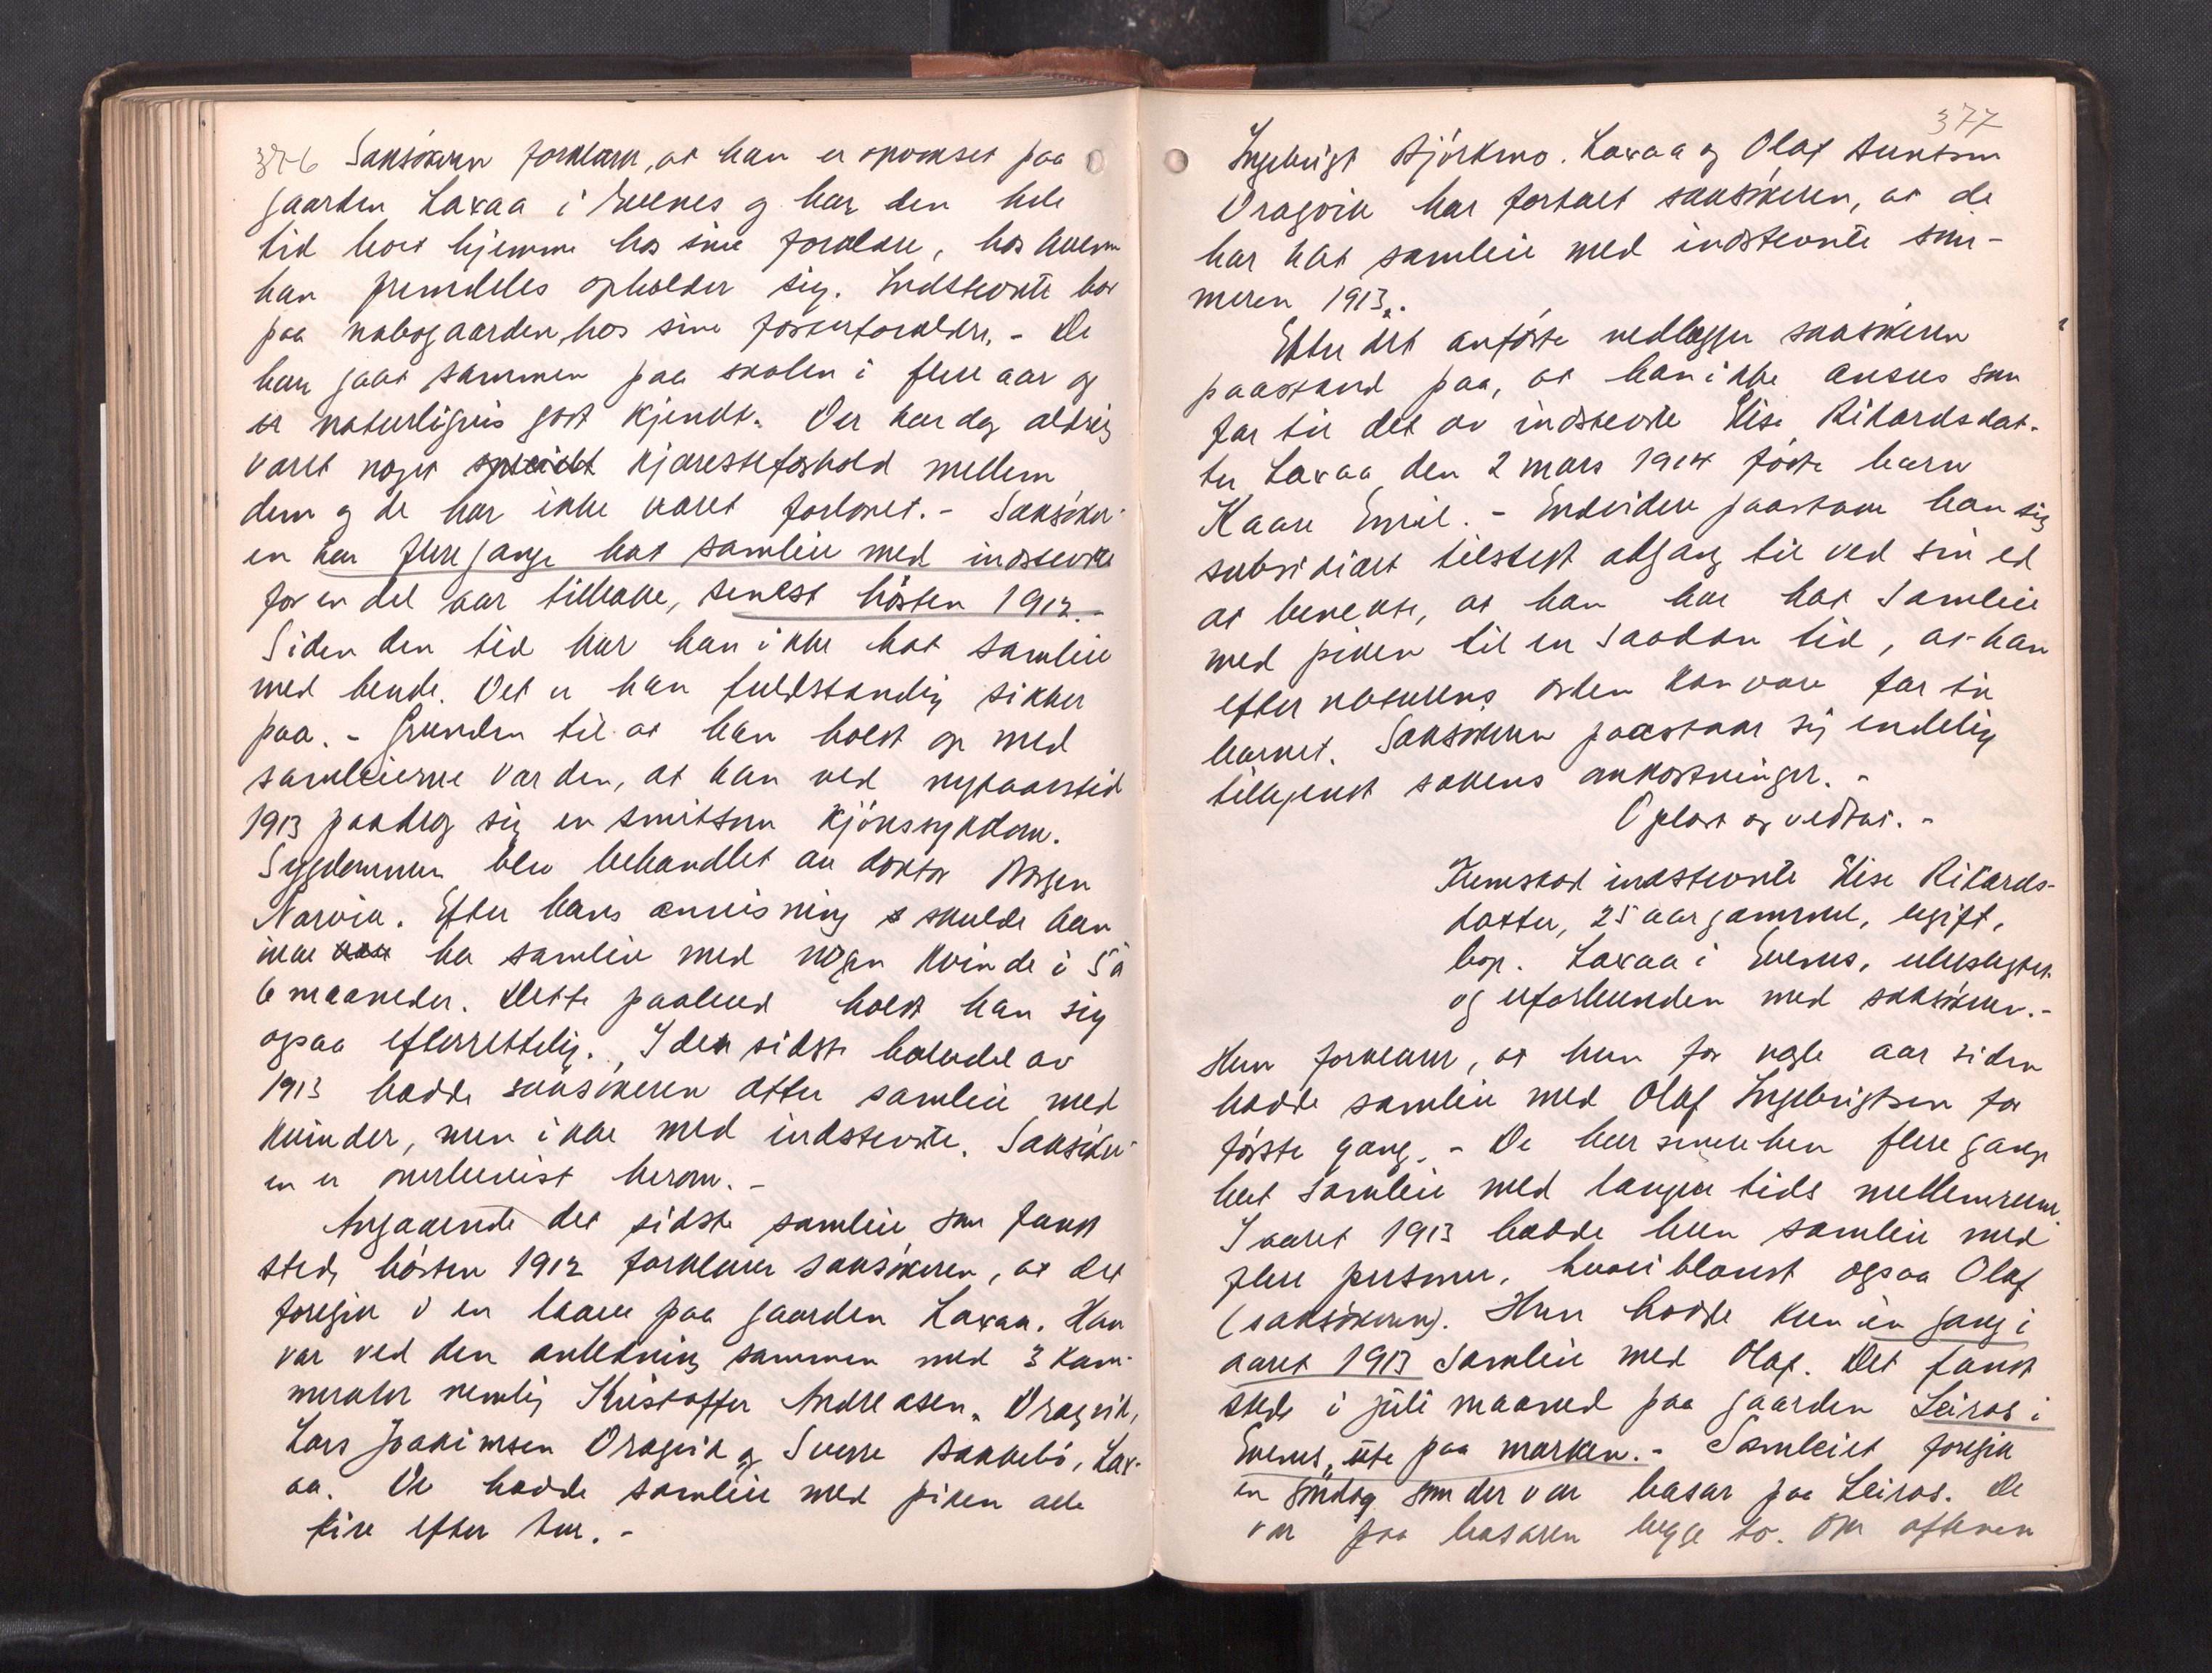 376 Saksökeren forklarer, at han er opvokset paa
gaarden Laxaa i Evenes og har den hele
tid boet hjemme hos sine forældre, hos hvem
han fremdeles opholder sig. Indstevnte bor
paa nabogaarden, hos sine fosterforældre. - De
har gaat sammen paa skolen i flere aar og
er naturligvis godt kjendt. Der har dog aldrig
været noget kjæresteforhold mellem
dem og de har ikke været forlovet. - Saksöker-
en har flere gange hat samleie med indstevnte
for en del aar tilbake, senest hösten 1912. -
Siden den tid har han ikke hat samleie
med hende. Det er han fuldstændig sikker
paa. - Grunden til at han holdt op med
samleierne var den, at han ved nytaarstid
1913 paadrog sig en smitsom kjönssykdom.
Sygdommen blev behandlet av doktor
Narvik. Efter hans anvisning skulde han
ikke ha samleie med nogen kvinde i 5 à
6 maaneder. Dette paabud holdt han sig
ogsaa efterrettelig. I den sidste halvdel av
1913 hadde saksökeren atter samleie med
kvinder, men ikke med indstevnte. Saksöker-
en er overbevist herom. -
Angaaende det sidste samleie som fandt
sted, hösten 1912 forklarer saksökeren, at det
foregik i en laave paa gaarden Laxaa. Han
var ved den anledning sammen med 3 kam-
merater nemlig Kristoffer Andreasen, Dragvik,
Lars Joakimsen Dragvik og Sverre Bakkebö, Lax-
aa. De hadde samleie med piken alle
fire efter tur. -
377
Ingebrigt Björkmo. Laxaa og Olaf Berntsen
Dragvik har fortalt saksökeren, at de
har hat samleie med indstevnte som-
meren 1913.
Efter det anförte nedlægger saksökeren
paastand paa, at han ikke ansees som
far til det av indstevnte Elise Rikardsdat-
ter Laxaa den 2 mars 1914 födte barn
Kaare Emil. - Endvidere paastaar han sig
subsidiært tilstedt adgang til ved sin ed
at benegte, at han har hat samleie
med piken til en saadan tid, at han
efter naturens orden kan være far til
barnet. Saksökeren paastaar sig endelig
tilkjendt sakens omkostninger. -
Oplæst og vedtat. -
Fremstod indstevnte Elise Rikards-
datter, 25 aar gammel, ugift,
bop. Laxaa i Evenes, ubeslegtet
og uforbunden med saksökeren. -
Hun forklarer, at hun for nogle aar siden
hadde samleie med Olaf Ingebrigtsen for
förste gang. - De har senerehen flere gange
hat samleie med langen tids mellemrum.
I aaret 1913 hadde hun samleie med
flere personer, hvoriblandt ogsaa Olaf
(saksökeren). Hun hadde kun én gang i
aaret 1913 samleie med Olaf. Det fandt
sted i juli maaned paa gaarden Leiros i
Evenes, ute paa marken. - Samleiet foregik
en söndag som der var basar paa Leiros. De
var paa basaren begge to. Om aftenen